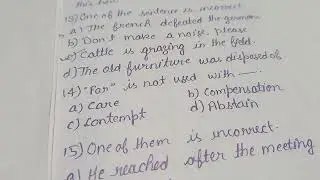 13) One of the sentence is incorrect
a) The french defeated the german
b) Don't make a noise, please
c) Cattle is grazing in the field.
d) The old furniture was disposed of
14) "For" is not used with —.
a) Care b) Compensation
c) Contempt d) Abstain
15) One of them is incorrect.
a) He reached after the meeting